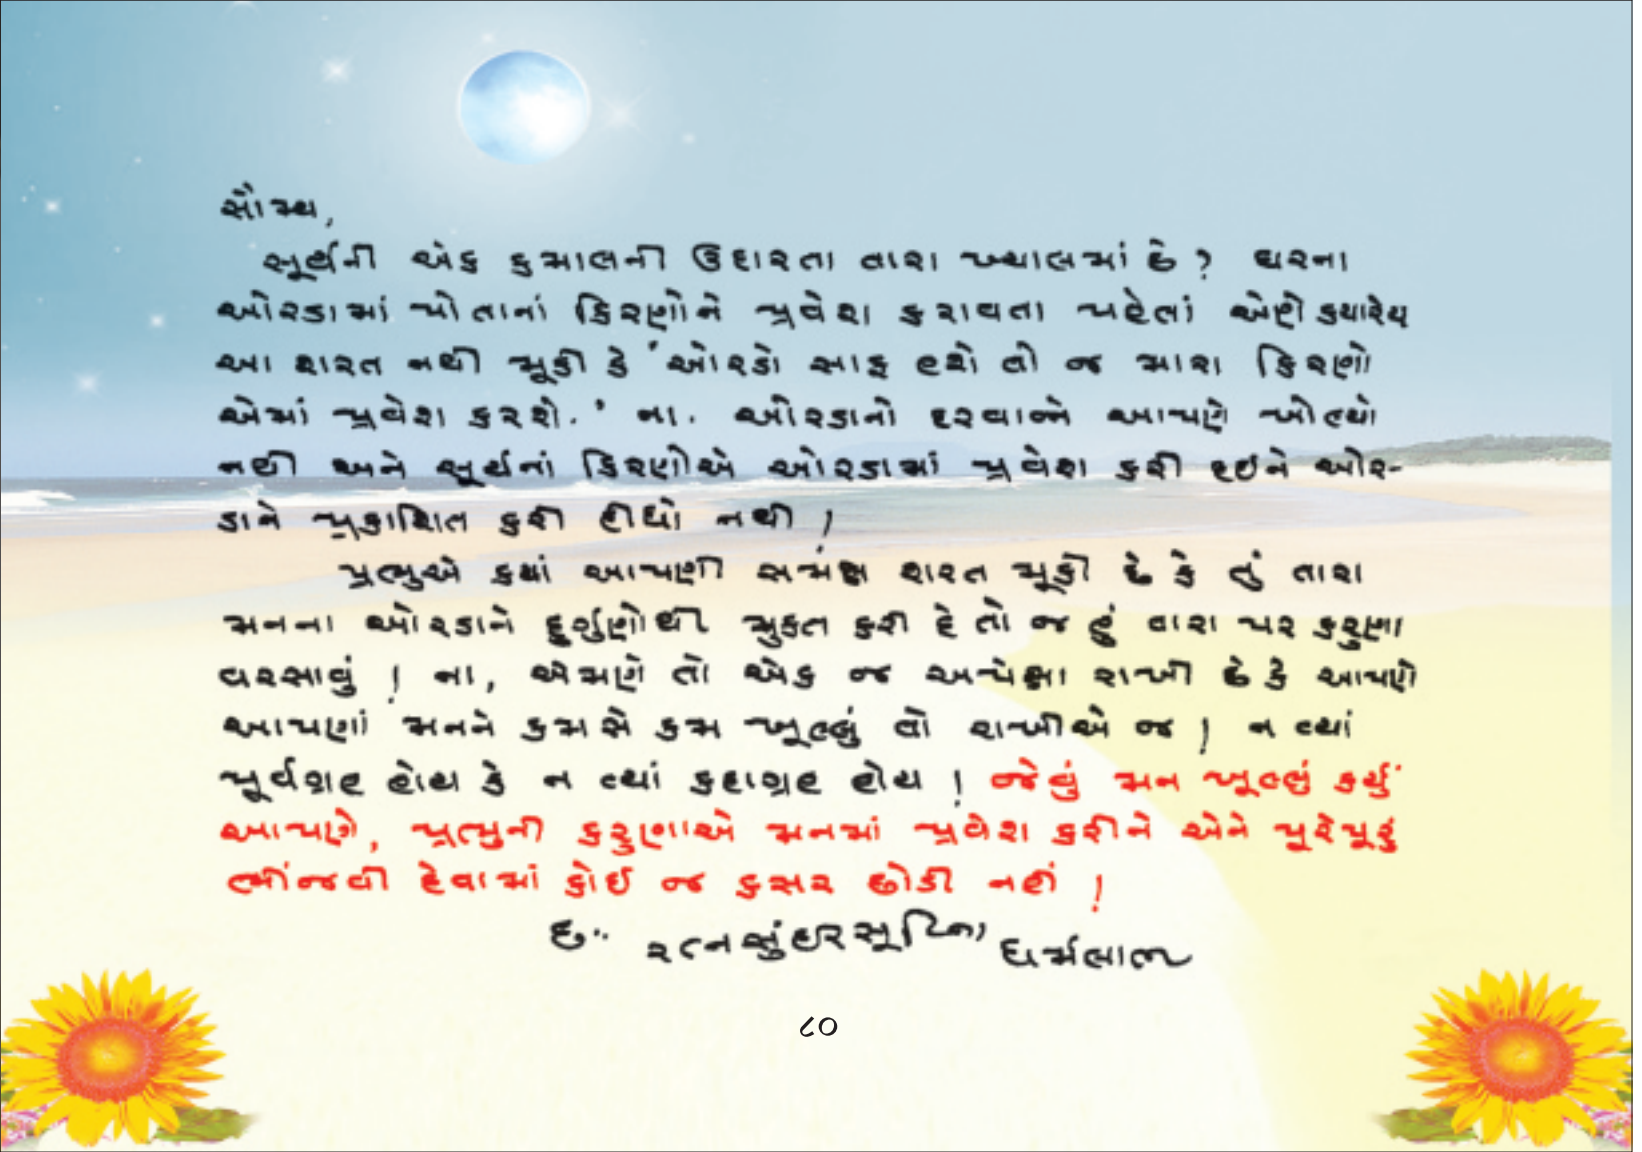 સૌમ્ય,
સૂર્યની એક કમાલની ઉદારતા તારા ખ્યાલમાં છે ? ઘરના
ઓરડામાં પોતાનાં કિરણોને પ્રવેશ કરાવતા પહેલાં એણે ક્યારેય
આ શરત નથી મૂકી કે 'ઓરડો સાફ હશે તો જ મારા કિરણો
એમાં પ્રવેશ કરશે.' ના. ઓરડાનો દરવાજો આપણે ખોલ્યો
નથી અને સૂર્યનાં કિરણોએ ઓરડામાં પ્રવેશ કરી દઇને ઓર-
ડાને પ્રકાશિત કરી દીધો નથી !
પ્રભુએ ક્યાં આપણી સમક્ષ શરત મૂકી છે કે તું તારા
મનના ઓરડાને દુર્ગુણોથી મુક્ત કરી દે તો જ હું તારા પર કરુણા
વરસાવું ! ના, એમણે તો એક જ અપેક્ષા રાખી છે કે આપણે
આપણાં મનને કમસે કમ ખૂલ્લું તો રાખીએ જ ! ન ત્યાં
પૂર્વગ્રહ હોય કે ન ત્યાં કદાગ્રહ હોય ! જેવું મન ખૂલ્લું કર્યું
આપણે, પ્રભુની કરુણાએ મનમાં પ્રવેશ કરીને એને પૂરેપૂરું
ભીંજવી દેવામાં કોઈ જ કસર છોડી નહીં !
દ.. રત્નસુંદરસૂરિના ધર્મલાભ
૮૦